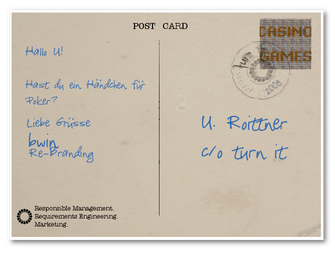 POST CARD
CASINO
GAMES
Hallo U!
Hast du ein Händchen für
Poker?
Liebe Grüsse
bwin
Re-Branding
2006
U. Roittner
c/o turn it
Responsible Management.
Requirements Engineering.
Marketing.